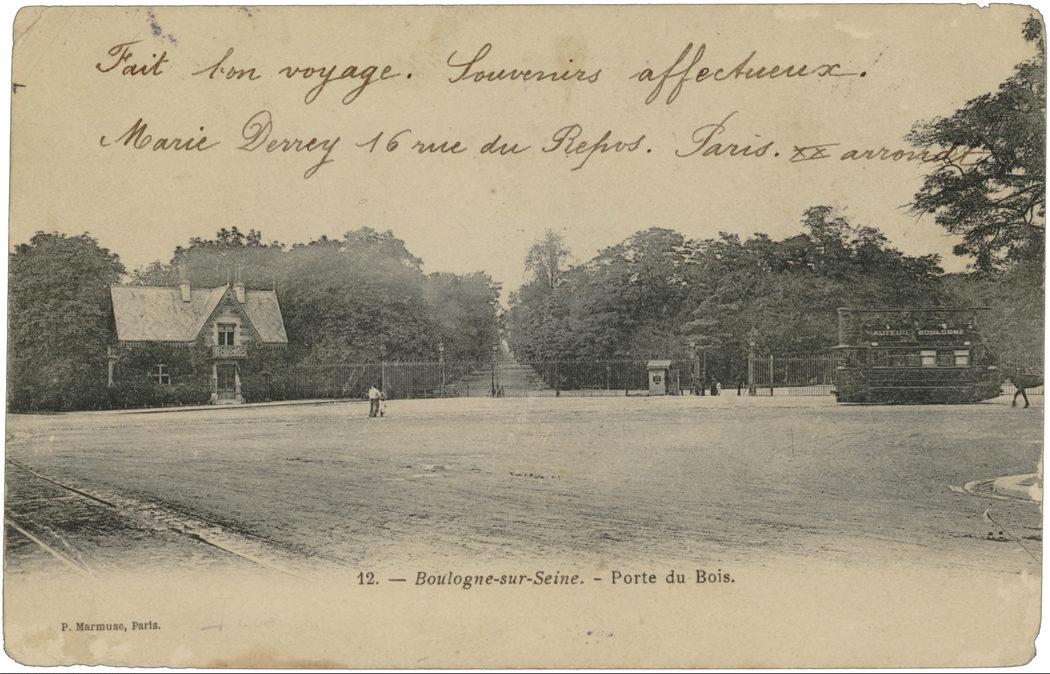 Fait bon voyage. Souvenirs affectueux.
Marie Derrey 16 rue du Repos. Paris. XX arrondt
AUTEUIL BOULOGNE
12. — Boulogne-sur-Seine. - Porte du Bois.
P. Marmuse, Paris.